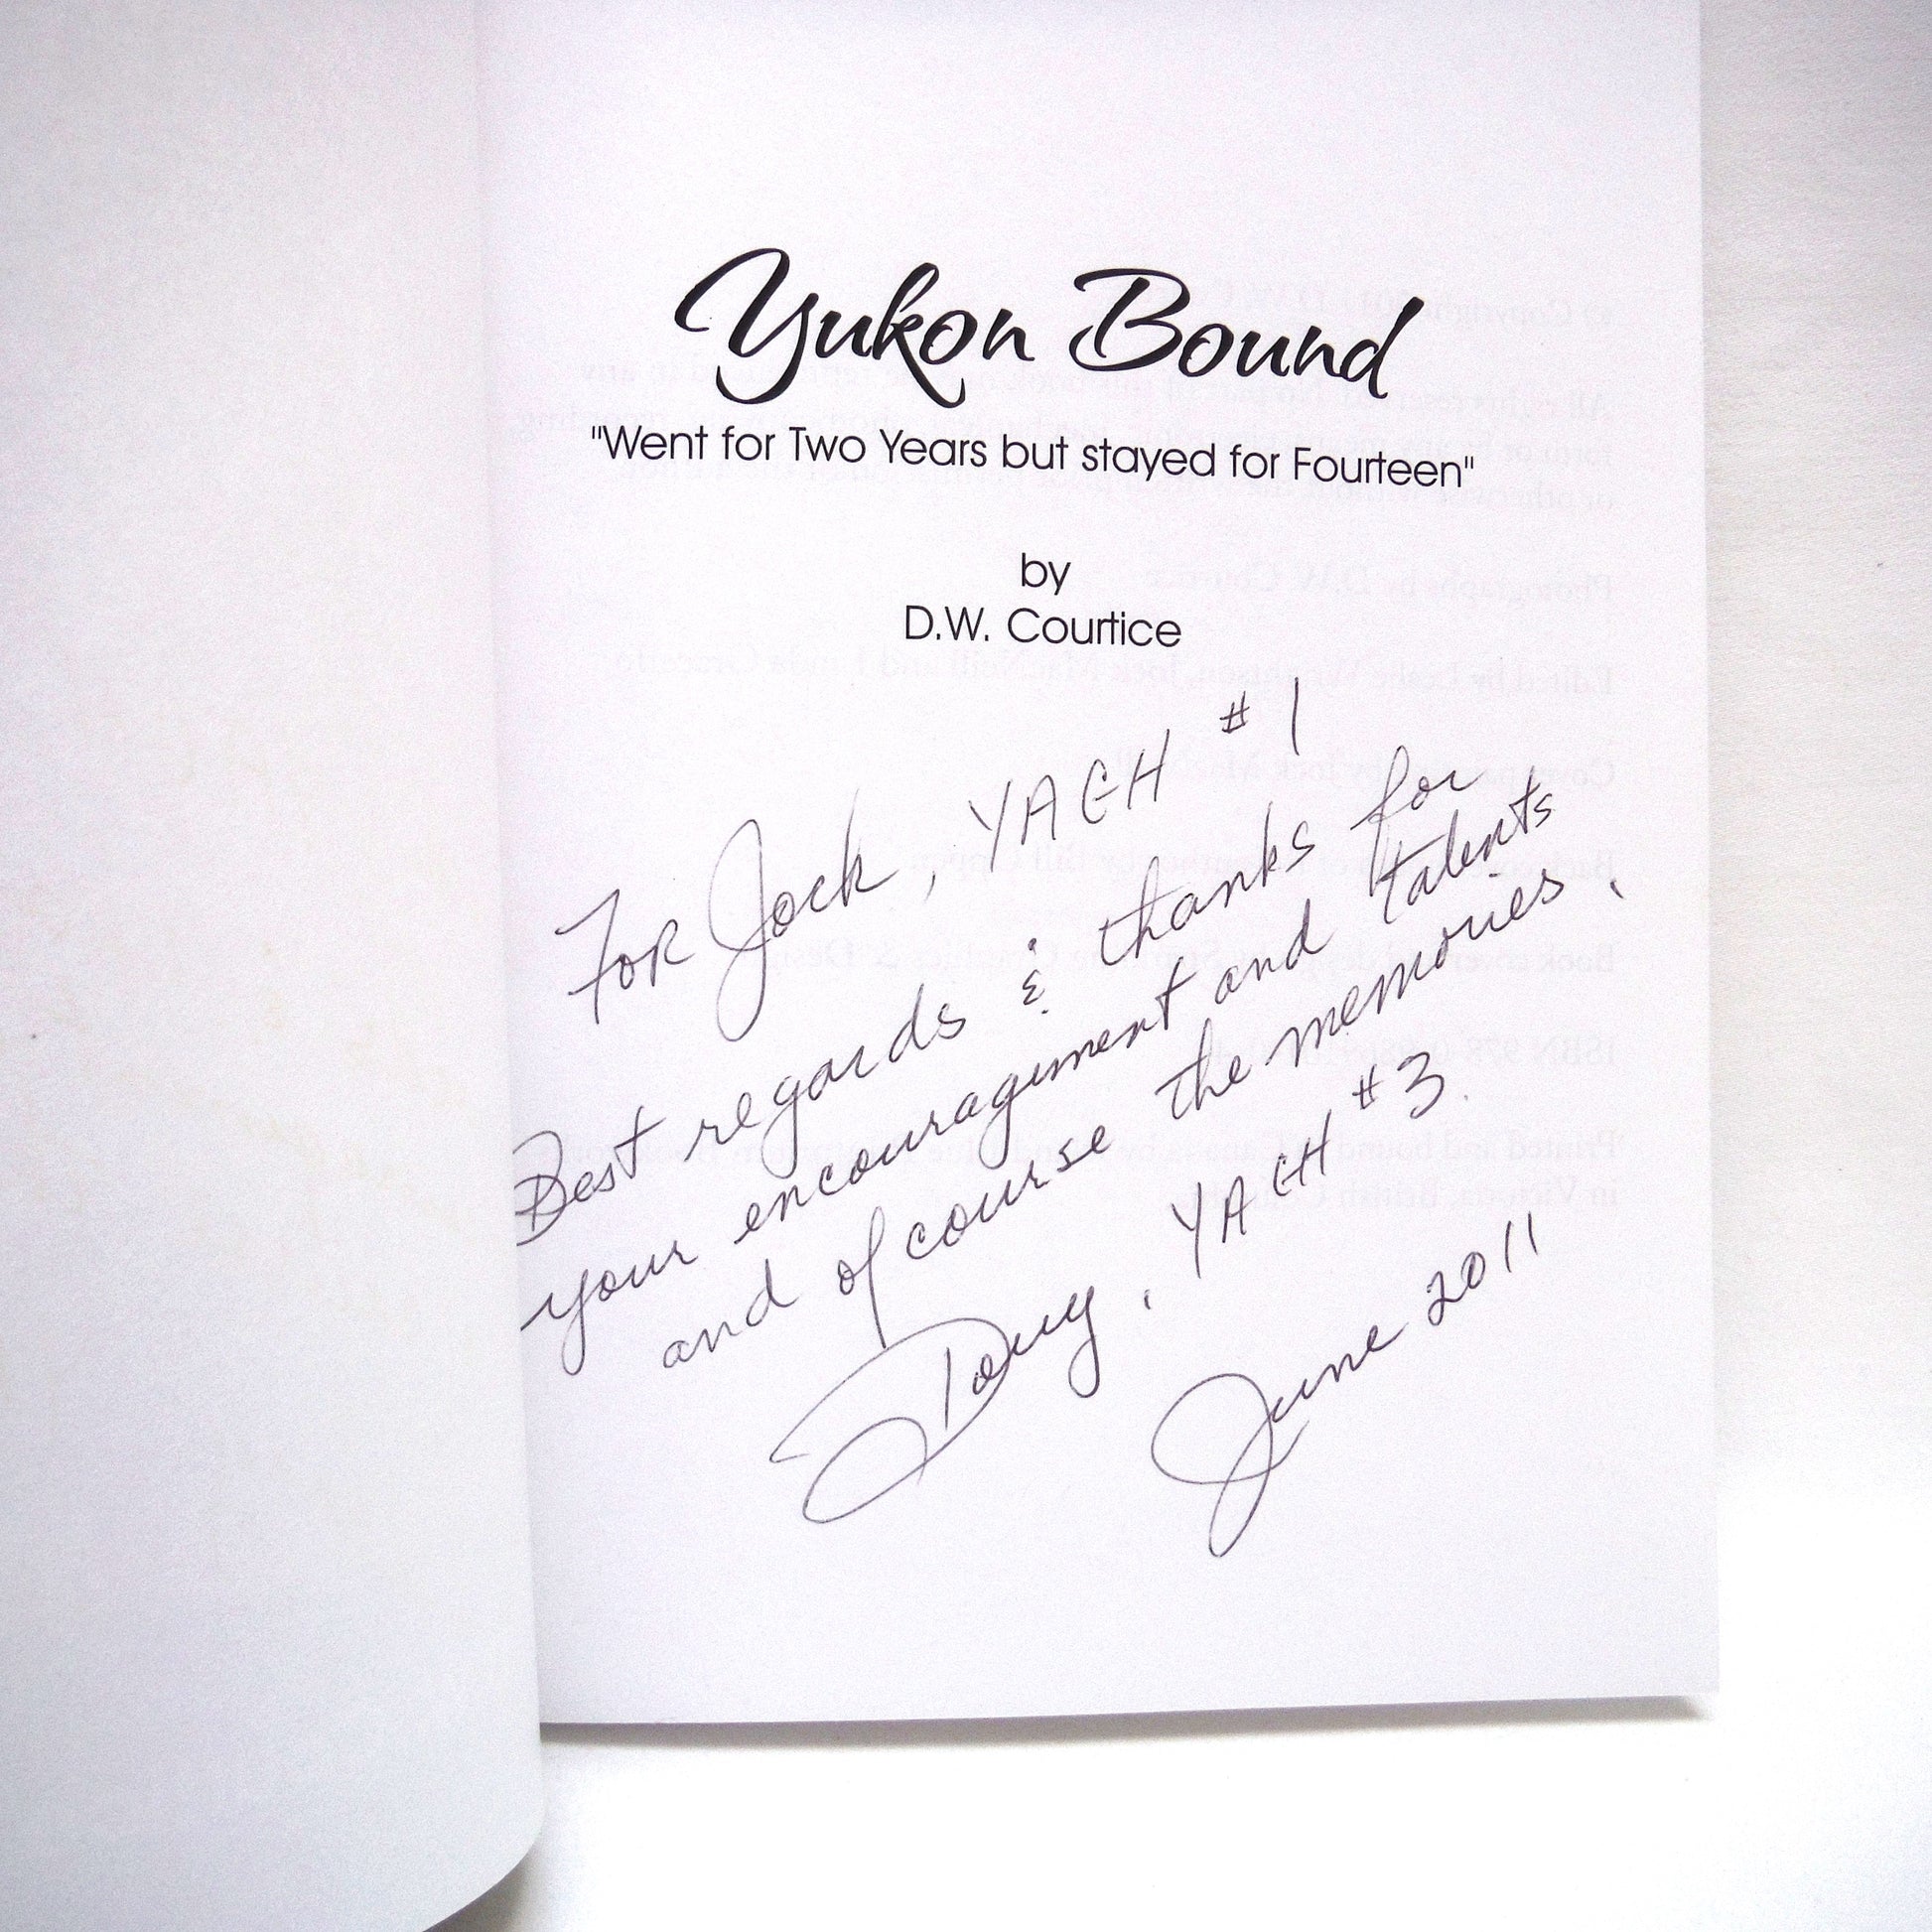 Yukon Bound
"Went for Two Years but stayed for Fourteen"
by
D.W. Courtice
FOR Jock, YAGH #1
Best regards & thanks for
your encouragement and talents
and of course the memories.
Doug, YAGH #3.
June 2011